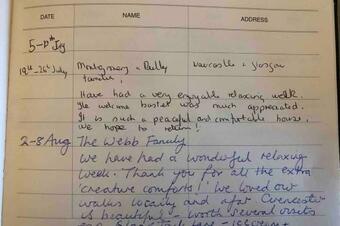 DATE NAME ADDRESS
19th-26th July Montgomery + families. Newcastle + Glasgow
Have had a very enjoyable relaxing week.
The welcome basket was much appreciated.
It is such a peaceful and comfortable house.
We hope to return!
2-8 Aug The Webb Family
We have had a wonderful relaxing
week. Thank you for all the extra
'creature comforts'! We loved our
walks locally and afar Cirencester
is beautiful - worth several visits